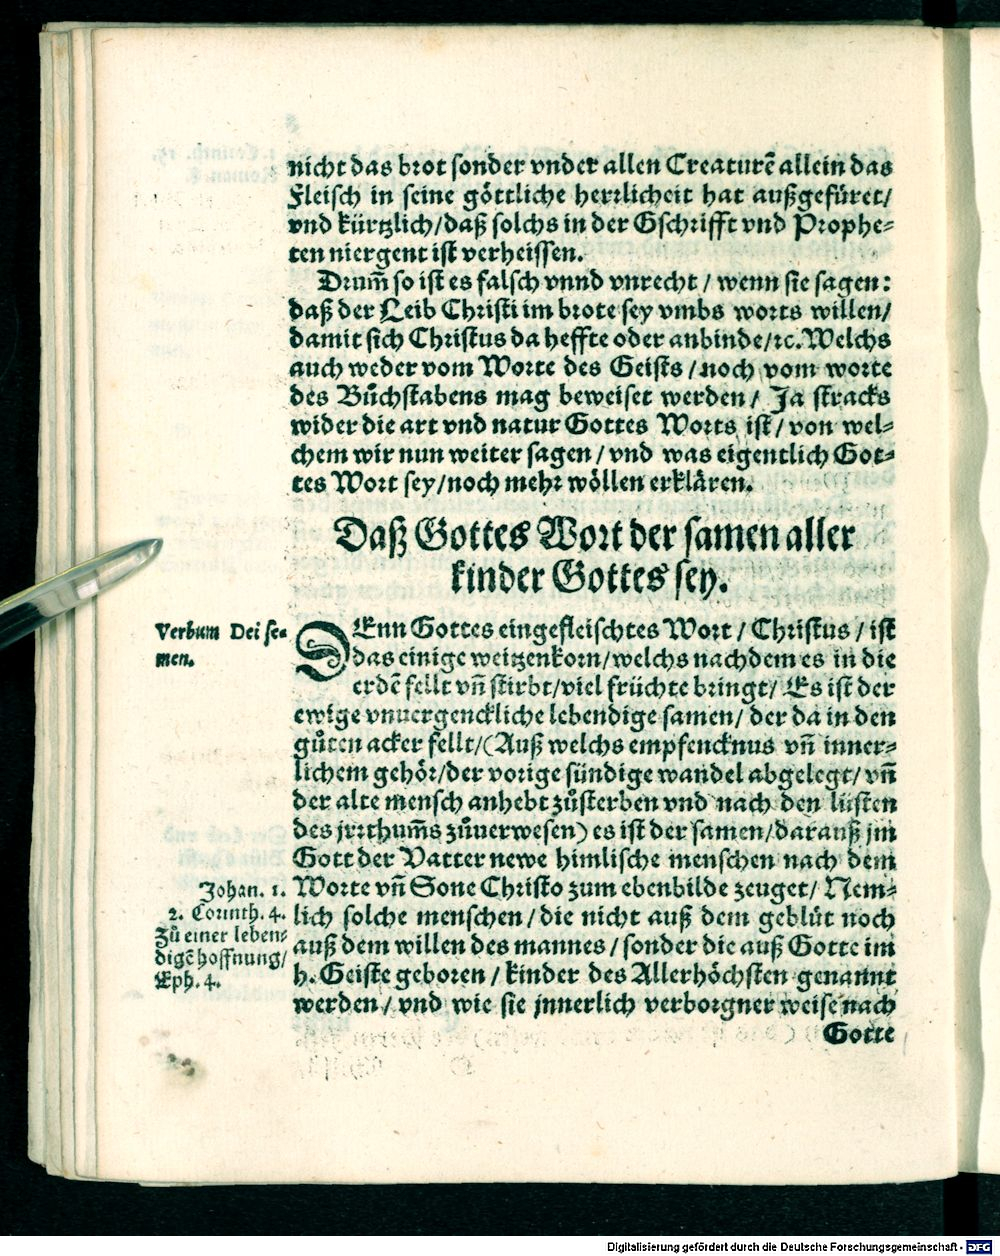 nicht das brot sonder vnder allen Creaturē allein das
Fleisch in seine göttliche herrlicheit hat außgefüret/
vnd kürtzlich/daß solchs in der Gschrifft vnd Prophe-
ten niergent ist verheissen.
Drum̃ so ist es falsch vnnd vnrecht / wenn sie sagen:
daß der Leib Christi im brote sey vmbs worts willen/
damit sich Christus da heffte oder anbinde/ꝛc. Welchs
auch weder vom Worte des Geists / noch vom worte
des Bůchstabens mag beweiset werden/ Ja stracks
wider die art vnd natur Gottes Worts ist / von wel-
chem wir nun weiter sagen / vnd was eigentlich Got-
tes Wort sey/noch mehr wöllen erklären.
Daß Gottes Wort der samen aller
kinder Gottes sey.
Verbum Dei se-
men.
DEnn Gottes eingefleischtes Wort / Christus / ist
das einige weitzenkorn/welchs nachdem es in die
erdē fellt vñ stirbt/viel früchte bringt/ Es ist der
ewige vnuergenckliche lebendige samen/ der da in den
gůten acker fellt/(Auß welchs empfencknus vñ inner-
lichem gehör/der vorige sündige wandel abgelegt/ vñ
der alte mensch anhebt zůsterben vnd nach den lüsten
des jrrthum̃s zůuerwesen) es ist der samen/darauß jm
Gott der Vatter newe himlische menschen nach dem
Worte vñ Sone Christo zum ebenbilde zeuget/ Nem-
lich solche menschen / die nicht auß dem geblüt noch
auß dem willen des mannes / sonder die auß Gotte im
h. Geiste geboren / kinder des Allerhöchsten genannt
werden / vnd wie sie jnnerlich verborgner weise nach
Johan. 1.
2. Corinth. 4.
Zů einer leben-
digē hoffnung/
Eph. 4.
Gotte
Digitalisierung gefördert durch die Deutsche Forschungsgemeinschaft - DFG